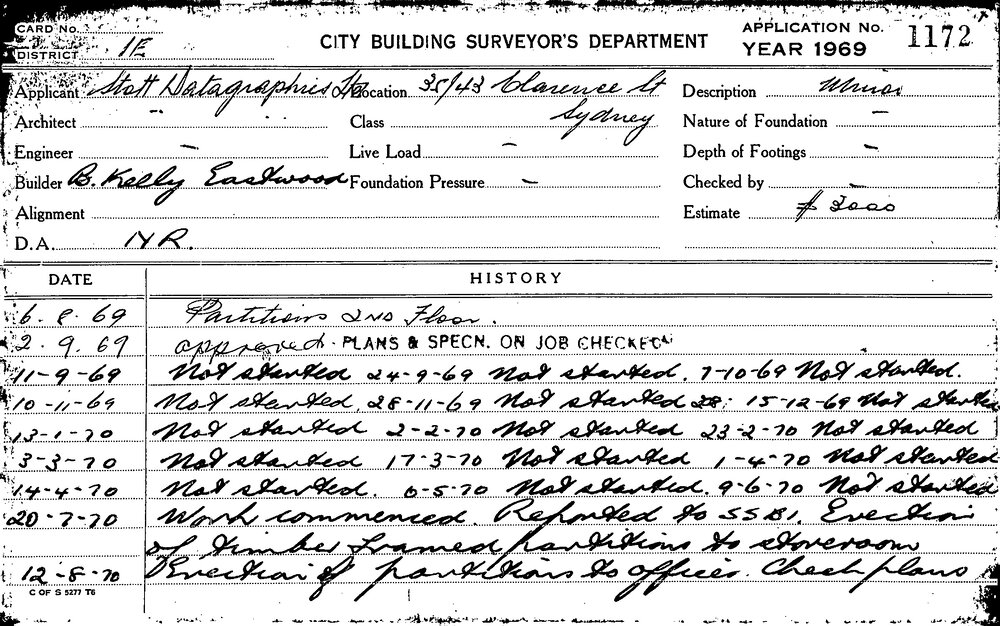 CARD No. CITY BUILDING SURVEYOR'S DEPARTMENT APPLICATION No. 1172
DISTRICT 1E YEAR 1969
Applicant Stott Datagraphics Location 35/43 Clarence St Description Minor
Architect - Class Sydney Nature of Foundation -
Engineer - Live Load - Depth of Footings -
Builder B. Kelly Eastwood Foundation Pressure - Checked by -
Alignment Estimate $ 3000
D.A. N R.
DATE HISTORY
6. 8. 69 Partitions 2ND Floor.
2. 9. 69 approved. PLANS & SPECN. ON JOB CHECKED
11-9-69 Not started 24-9-69 Not started. 7-10-69 Not started.
10-11-69 Not started. 28-11-69 Not started 28: 15-12-69 Not started
13-1-70 Not started 2-2-70 Not started 23-2-70 Not started
3-3-70 Not started 17-3-70 Not started 1-4-70 Not started
14-4-70 Not started. 6-5-70 Not started. 9-6-70 Not started
20-7-70 Work commenced. Reported to SSBI. Erection
of timber framed partitions to storeroom
12-8-70 Erection of partitions to offices. Check plans
C OF S 5277 T6